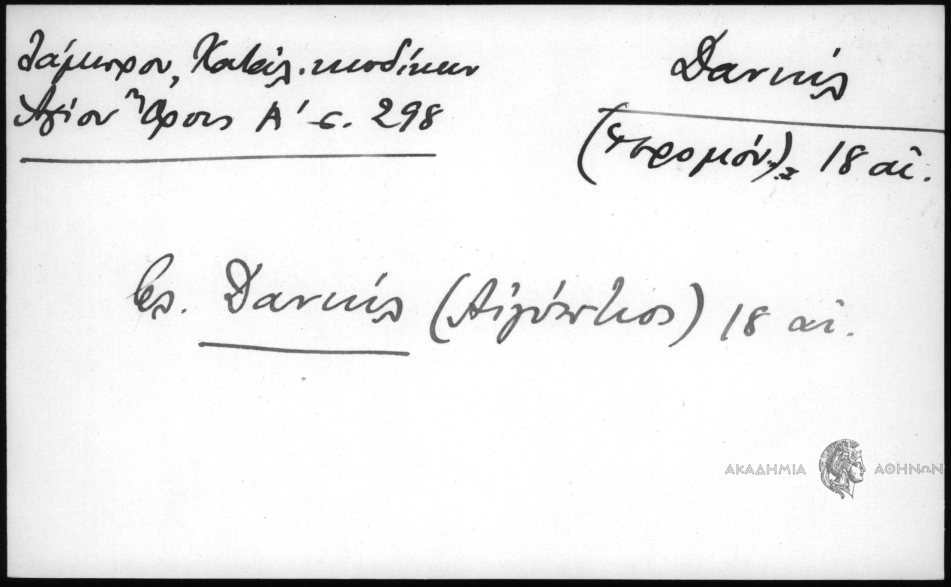 Λάμπρου, Κατάλ. κωδίκων
Ἁγίου Ὄρους Α' σ. 298
Δανιήλ
(Ἱερομόν.), 18 αἰ.
βλ. Δανιήλ (Αἰγύπτιος) 18 αἰ.
ΑΚΑΔΗΜΙΑ ΑΘΗΝΩΝ